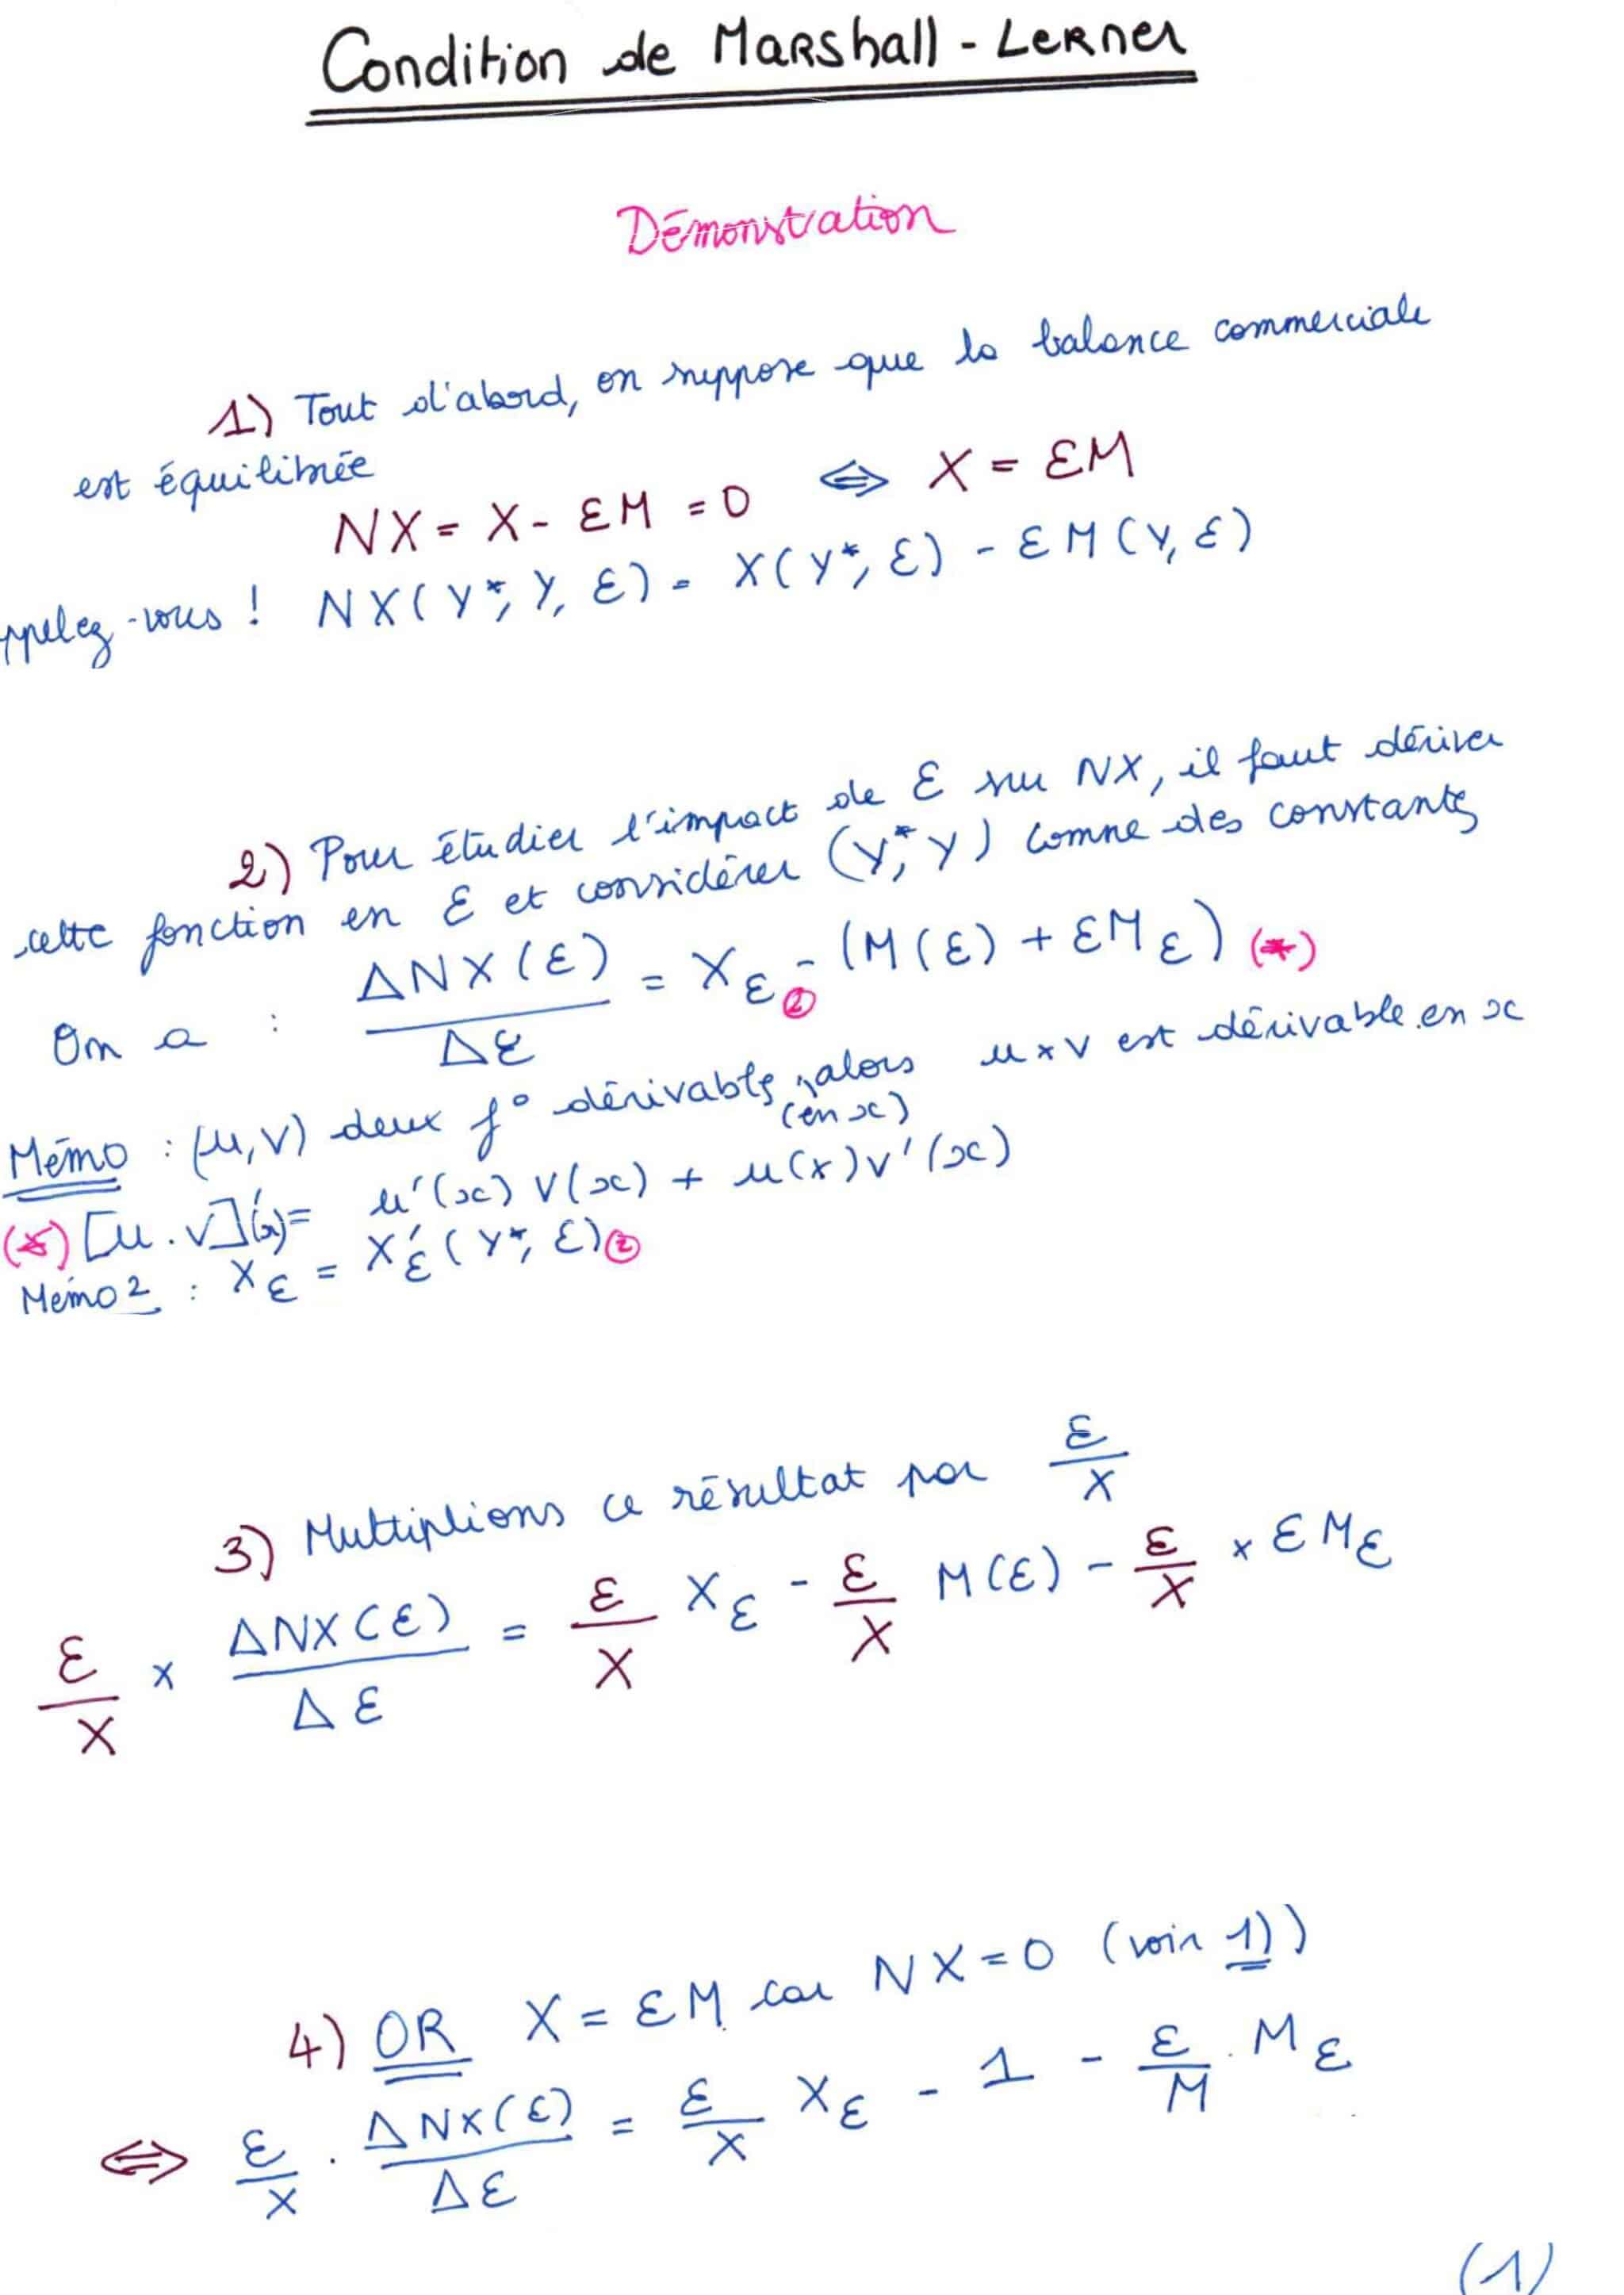 Condition de Marshall - Lerner
Démonstration
1) Tout d'abord, on suppose que la balance commerciale
est équilibrée
NX = X - ƐM = 0 ⇔ X = ƐM
ppelez-vous ! NX(Y*, Y, Ɛ) = X(Y*, Ɛ) - ƐM(Y, Ɛ)
2) Pour étudier l'impact de Ɛ sur NX, il faut dériver
cette fonction en Ɛ et considérer (Y*, Y) comme des constantes
On a : ΔNX(Ɛ)/ΔƐ = X_Ɛ ② - (M(Ɛ) + ƐM_Ɛ) (*)
Mémo : (u, v) deux f° dérivables, alors u × v est dérivable en x
(en x)
(*) [u . v]'(x) = u'(x) v(x) + u(x) v'(x)
Mémo 2 : X_Ɛ = X'_Ɛ (Y*, Ɛ) ②
3) Multiplions ce résultat par Ɛ/X
Ɛ/X × ΔNX(Ɛ)/ΔƐ = Ɛ/X X_Ɛ - Ɛ/X M(Ɛ) - Ɛ/X × ƐM_Ɛ
4) OR X = ƐM car NX = 0 (voir 1))
⇔ Ɛ/X . ΔNX(Ɛ)/ΔƐ = Ɛ/X X_Ɛ - 1 - Ɛ/M . M_Ɛ
(1)